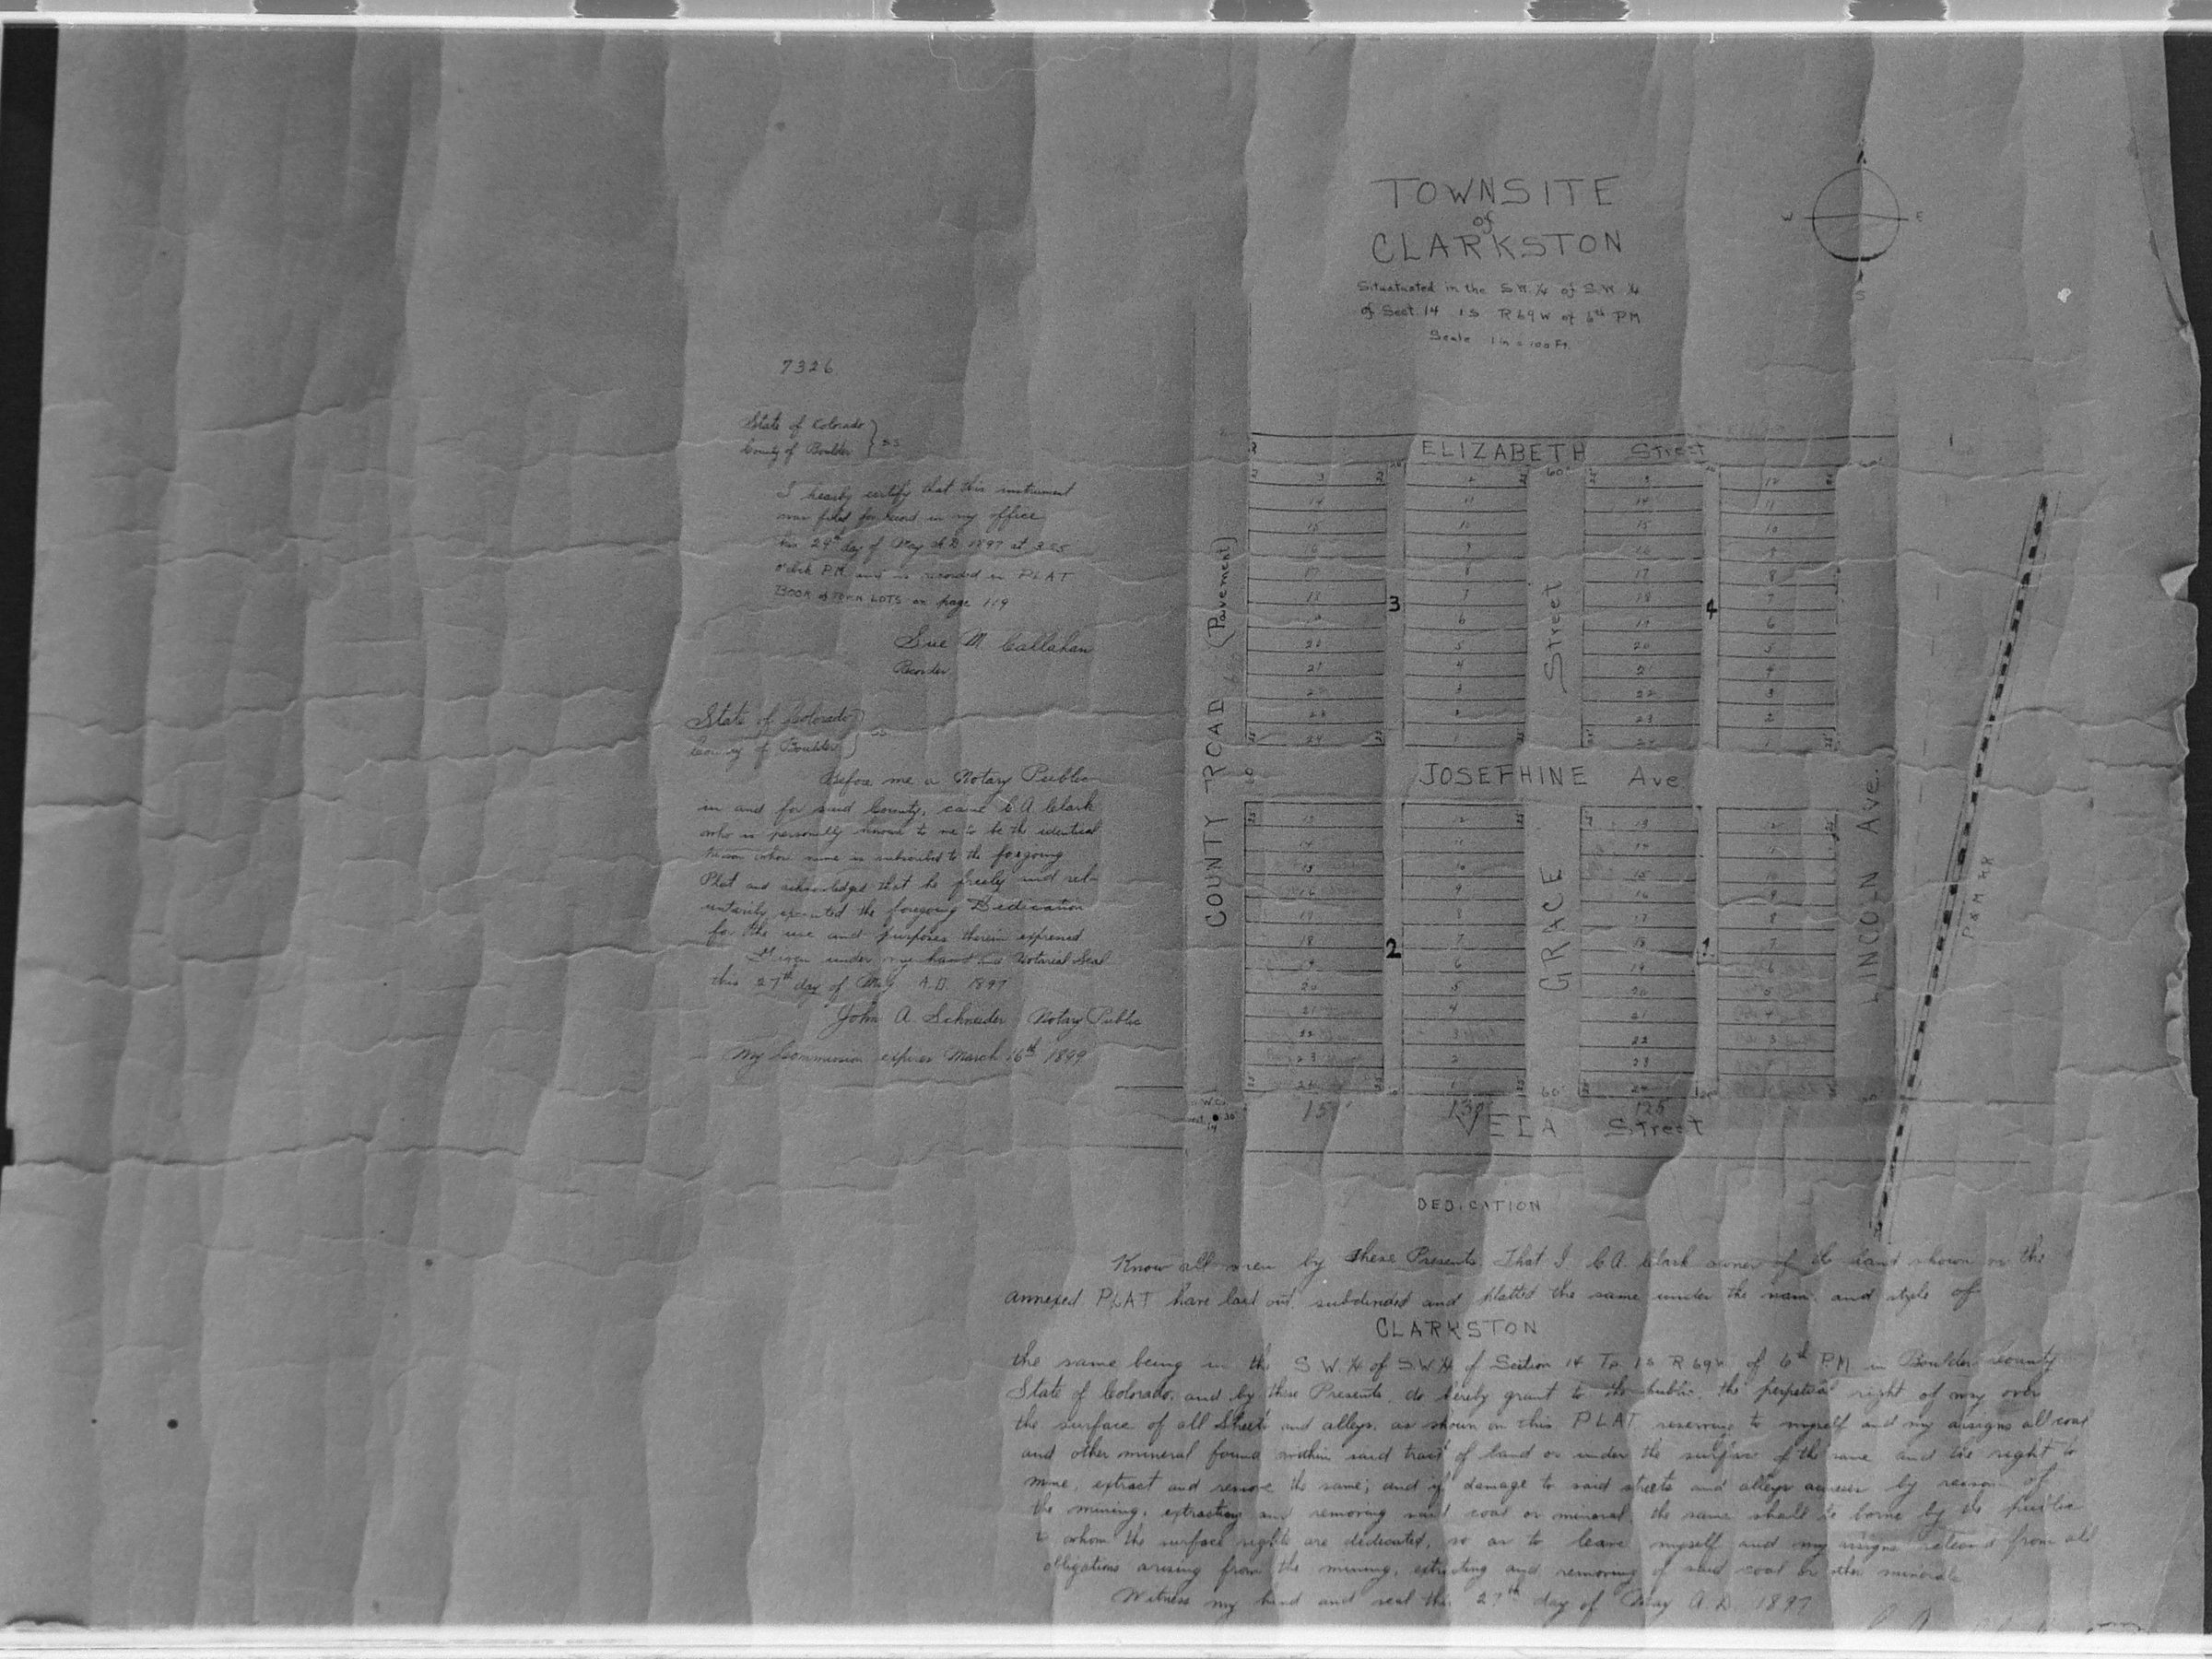 TOWNSITE
of
CLARKSTON
Situatuated in the S.W. ¼ of S.W. ¼
of Sect. 14 1S R69W of 6th PM
Scale 1 in = 100 Ft.
W E
S
7326
State of Colorado } SS
County of Boulder
I hearby certify that this instrument
was filed for record in my office
this 29th day of May A.D. 1897 at 3.25
o'clock P.M. and is recorded in PLAT
BOOK of TOWN LOTS on page 119
Sue M. Callahan
Recorder
State of Colorado } SS
County of Boulder
Before me a Notary Public
in and for said County, came C.A. Clark
who is personally known to me to be the identical
person whose name is subscribed to the foregoing
Plat and acknowledged that he freely and vol-
untarily executed the foregoing Dedication
for the use and purposes therein expressed
Given under my hand and Notarial Seal
this 27th day of May A.D. 1897
John A. Schneider Notary Public
My Commission expires March 16th 1899
ELIZABETH Street
COUNTY ROAD (Pavement)
GRACE Street
JOSEPHINE Ave.
LINCOLN Ave.
P & M RR
3
14 11
15 10
16 9
17 8
18 7
19 6
20 5
21 4
22 3
23 2
24 1
4
13 12
14 11
15 10
16 9
17 8
18 7
19 6
20 5
21 4
22 3
23 2
24 1
2
13 12
14 11
15 10
16 9
17 8
18 7
19 6
20 5
21 4
22 3
23 2
24 1
1
13 12
14 11
15 10
16 9
17 8
18 7
19 6
20 5
21 4
22 3
23
24
60'
W.C.
130 125
Street
DEDICATION
Know all men by these Presents, That I, C.A. Clark owner of the land shown on the
annexed PLAT have laid out, subdivided and platted the same under the name and style of
CLARKSTON
the same being in the S.W. ¼ of S.W. ¼ of Section 14 Tp. 1S R 69W of 6th P.M. in Boulder County
State of Colorado, and by these Presents, do hereby grant to the public, the perpetual right of way over
the surface of all Streets and alleys, as shown on this PLAT reserving to myself and my assigns all coal
and other mineral found within said tract of land or under the surface of the same and the right to
mine, extract and remove the same; and if damage to said streets and alleys accrues by reason of
the mining, extracting and removing said coal or mineral, the same shall be borne by the public
to whom the surface rights are dedicated, so as to leave myself and my assigns released from all
obligations arising from the mining, extracting and removing of said coal or other minerals
Witness my hand and seal this 27th day of May A.D. 1897